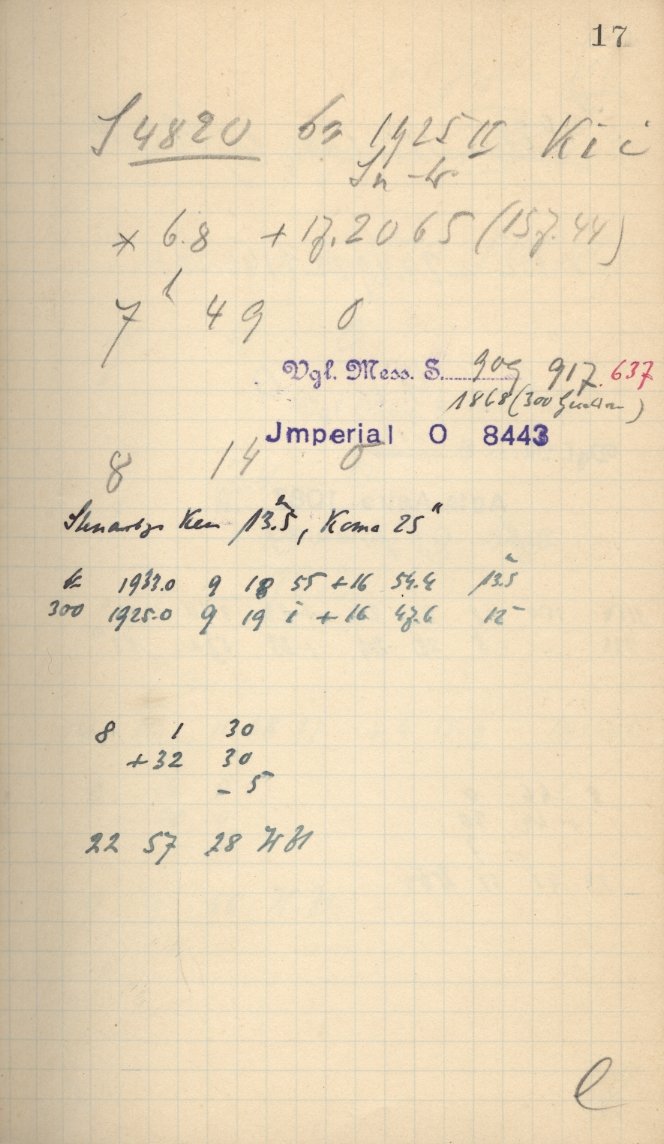 17
S 4820 1925 II
* 6.8 + 17.2065 (157.44)
7 h 49 0
Vgl. Mess. S. 909 917.637
1868 (300
Jmperial O 8443
8 14 0
Kern 13.5, Koma 25"
1933.0 9 18 55 + 16 54.4 13.5
300 1925.0 9 19 i + 16 47.6 12
8 1 30
+ 32 30
- 5
22 57 28
e